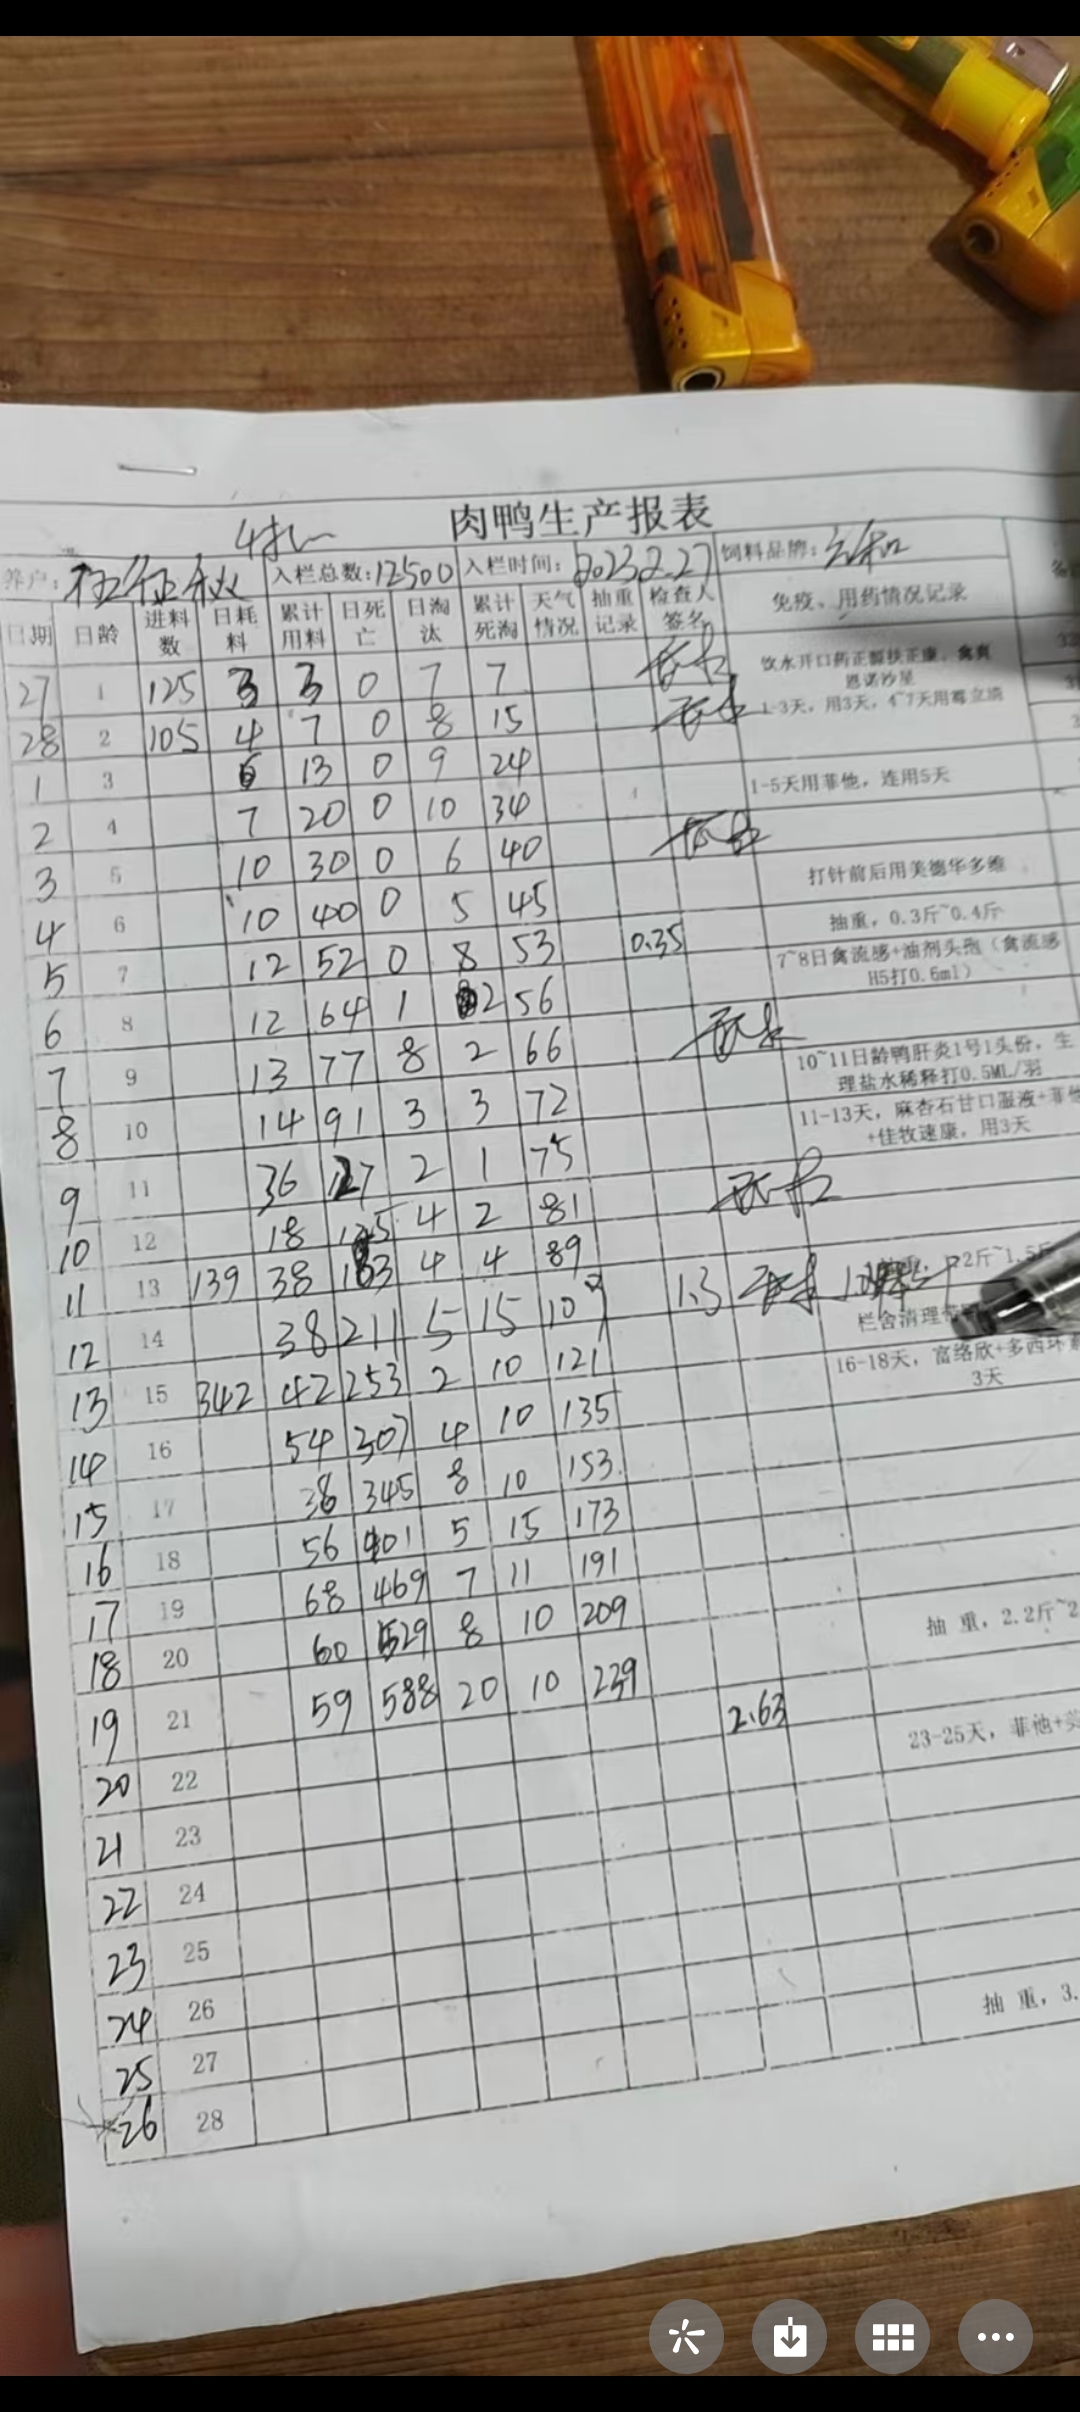 肉鸭生产报表
养户: 入栏总数:12500 入栏时间:2023.2.27 饲料品牌:
日期 日龄 进料数 日耗料 累计用料 日死亡 日淘汰 累计死淘 天气情况 抽重记录 检查人签名 免疫、用药情况记录
27 1 125 3 3 0 7 7 饮水开口药正 扶正康，禽爽
恩诺沙星
28 2 105 4 7 0 8 15 1-3天，用3天，4~7天用霉立清
1 3 6 13 0 9 24
2 4 7 20 0 10 34 1-5天用菲他，连用5天
3 5 10 30 0 6 40
4 6 10 40 0 5 45 打针前后用美德华多维
抽重，0.3斤~0.4斤
5 7 12 52 0 8 53 0.35 7~8日禽流感+油剂头孢（禽流感
H5打0.6ml）
6 8 12 64 1 2 56
7 9 13 77 8 2 66 10~11日龄鸭肝炎1号1头份，生
理盐水稀释打0.5ML/羽
8 10 14 91 3 3 72 11-13天，麻杏石甘口服液+菲他
+佳牧速康，用3天
9 11 36 127 2 1 75
10 12 18 145 4 2 81
11 13 139 38 183 4 4 89 1.3
12 14 38 211 5 15 109 栏舍清理
13 15 342 42 253 2 10 121 16-18天，富络欣+多西环素
3天
14 16 54 307 4 10 135
15 17 38 345 8 10 153
16 18 56 401 5 15 173
17 19 68 469 7 11 191
18 20 60 529 8 10 209 抽 重，2.2斤~2
19 21 59 588 20 10 239 2.63
20 22 23-25天，菲他+
21 23
22 24
23 25
24 26
25 27 抽 重，3.
26 28